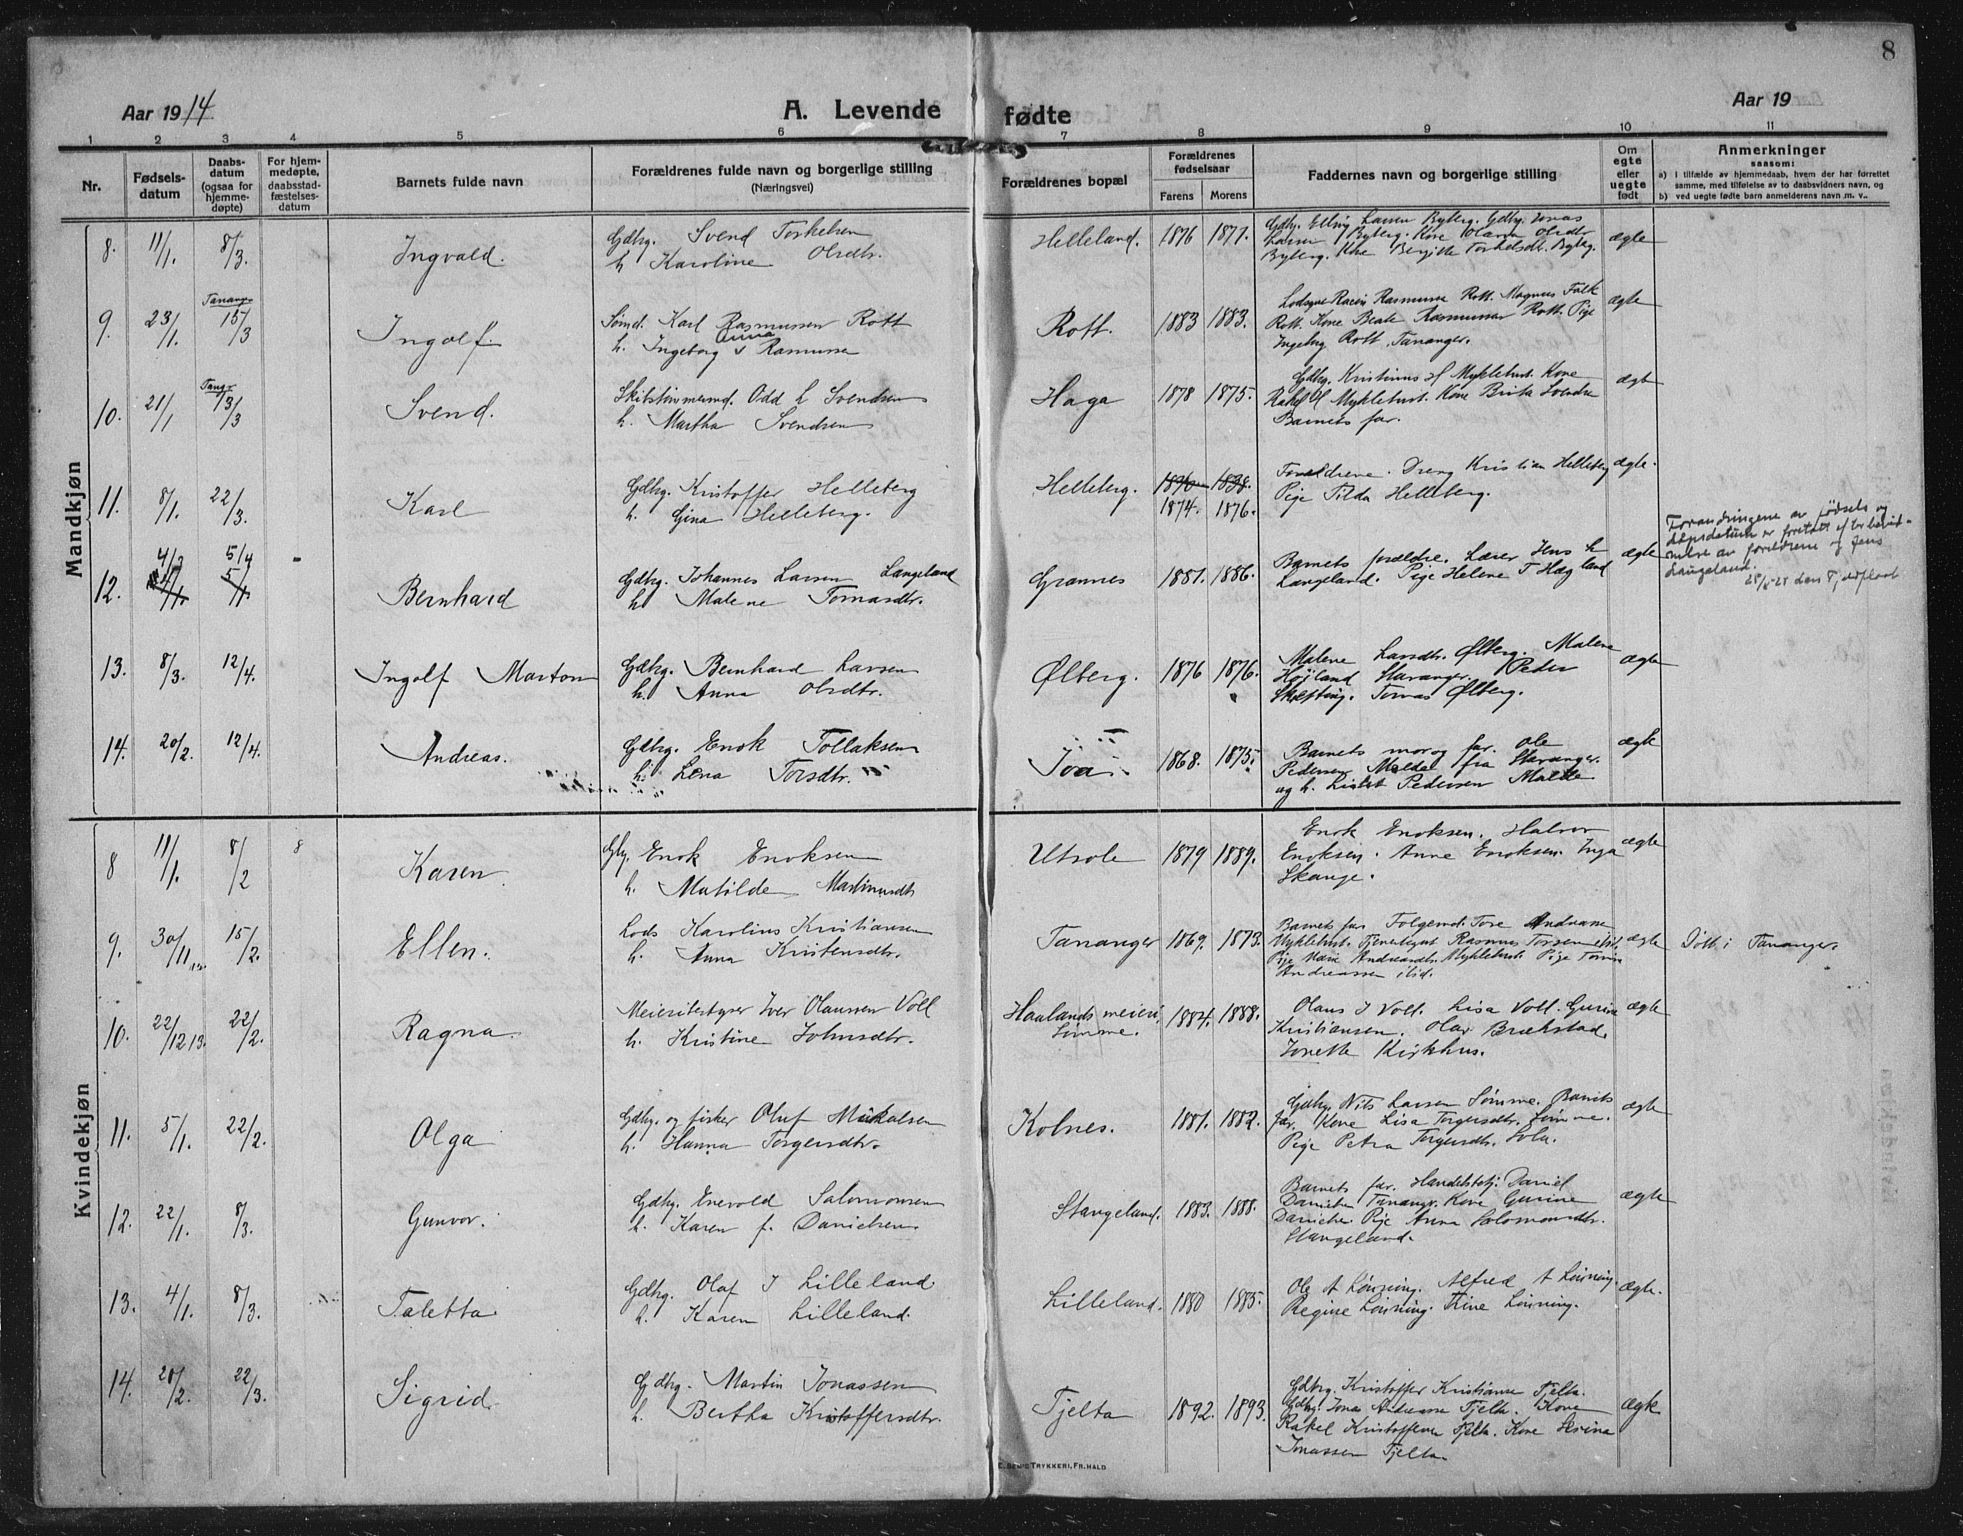 8
Aar 1914
A. Levende fødte
Aar 19
1 2 3 4 5 6 7 8 9 10 11
Nr.
Fødsels-
datum
Daabs-
datum
(ogsaa for
hjemme-
døpte)
For hjem-
medøpte,
daabsstad-
fæstelses-
datum
Barnets fulde navn
Forældrenes fulde navn og borgerlige stilling
(Næringsvei)
Forældrenes bopæl
Forældrenes
fødselsaar
Farens Morens
Faddernes navn og borgerlige stilling
Om
egte
eller
uegte
født
Anmerkninger
saasom:
a) i tilfælde av hjemmedaab, hvem der har forrettet
samme, med tilføielse av to daabsvidners navn, og
b) ved uegte fødte barn anmelderens navn m. v..
Mandkjøn
8. 11/1. 8/3. Ingvald.
Gdbg. Svend Torkelsen
h. Karoline Olsdtr.
Helleland. 1876 1877.
Gdbg. Elling Larsen Byberg. Gdbg. Jonas
Larsen Byberg. Kone Olsdtr
Byberg. Kone Bergitte Torkelsdtr. Byberg.
ægte
9. 23/1. Tananger 15/3 Ingolf.
Sømd. Karl Rasmussen Rott
h. Ingeborg Anna Rasmussen
Rott. 1883 1883.
Rasmussen Rott. Magnus Falk
Rott. Kone Beate Rasmussen Rott. Pige
Ingeborg Rott. Tananger.
ægte
10. 21/1 Tangr 13/3 Svend.
Skibstømmermd. Odd L Svendsen
h. Martha Svendsen
Haga 1878 1875.
Gdbg. Kristinius H Myklebust. Kone
Rakel Myklebust. Kone Brita Svendsen
Barnets far.
ægte
11. 8/1. 22/3. Karl
Gdbg. Kristoffer Helleberg
h. Gina Helleberg.
Helleberg. 1876 1838.
1874. 1876.
Forældrene. Dreng Kristian Helleberg
Pige Tilda Helleberg.
ægte.
12. 4/2 5/4 Bernhard
Gdbg. Johannes Larsen Langeland
h. Malene Tomasdtr.
Grannes 1881 1886.
Barnets forældre. Lærer Jens L
Langeland. Pige Helene T Hægland
ægte
Forandringene av fødsels og
dåpsdatum er foretatt
av foreldrene og Jens
Langeland.
13. 8/3. 12/4. Ingolf Marton
Gdbg. Bernhard Larsen
h. Anna Olsdtr.
Ølberg. 1876 1876.
Malene Larsdtr. Ølberg. Malene
Højland Stavanger. Peder
Skæfting. Tomas Ølberg.
ægte
14. 20/2. 12/4. Andreas.
Gdbg. Enok Tollaksen
h. Lena Torsdtr.
Joa 1868. 1875.
Barnets mor og far. Ole
Pedersen Malde fra Stavanger.
og h. Lisbet Pedersen Malde
ægte
Kvindekjøn
8 11/1. 8/2 8 Karen.
Gbg. Enok Enoksen
h. Matilde Martinusdtr
Utsole 1879 1889.
Enok Enoksen. Halvor
Enoksen. Anne Enoksen. Inga
Skange.
ægte
9. 30/11 13. 15/2. Ellen.
Lods Karolius Kristiansen
h. Anna Kristensdtr.
Tananger 1869. 1873.
Barnets far Tore Andreas
Myklebust. Rasmus Torsen
Pige Marie Andreasdtr. Myklebust. Pige
Andreassen ibid.
ægte
Døbt i Tananger.
10. 22/12 13. 22/2. Ragna.
Meieribestyrer Iver Olaussen Voll
h. Kristine Johnsdtr.
Haalands meieri,
Sømme.
1884. 1888.
Olaus I Voll. Lisa Voll. Gurine
Kristiansen. Olav Brækstad.
Jonette Kirkhus.
ægte
11. 5/1. 22/2. Olga
Gdbg. og fisker Oluf Mikalsen
h. Hanna Torgersdtr.
Kolnes. 1881. 1882.
Gdbg. Nils Larsen Sømme. Barnets
far. Kone Lisa Torgersdtr. Sømme.
Pige Petra Torgersdtr. Sola.
ægte
12. 22/1. 8/3. Gunvor.
Gdbg. Enevold Salomonsen
h. Karen f. Danielsen
Stangeland. 1883. 1888.
Barnets far. Daniel
Danielsen Tananger. Kone Gurine
Danielsen. Pige Anna Solomonsdtr.
Stangeland.
ægte
13. 4/1. 8/3. Taletta
Gdbg. Olaf J Lilleland.
h. Karen Lilleland.
Lilleland. 1880 1885.
Ole A Løvning. Alfred A Løvning.
Regine Løvning. Trine Løvning.
ægte.
14. 20/2. 22/3. Sigrid
Gdbg. Martin Jonassen
h. Bertha Kristoffersdtr.
Tjelta 1892. 1893.
Gdbg. Kristoffer Kristianse Tjelta.
Gdbg. Jonas Andreasse Tjelta. Kone
Rakel Kristoffersen Tjelta. Kone Serina
Jonassen Tjelta.
ægte
TRYKKERI, FR.HALD